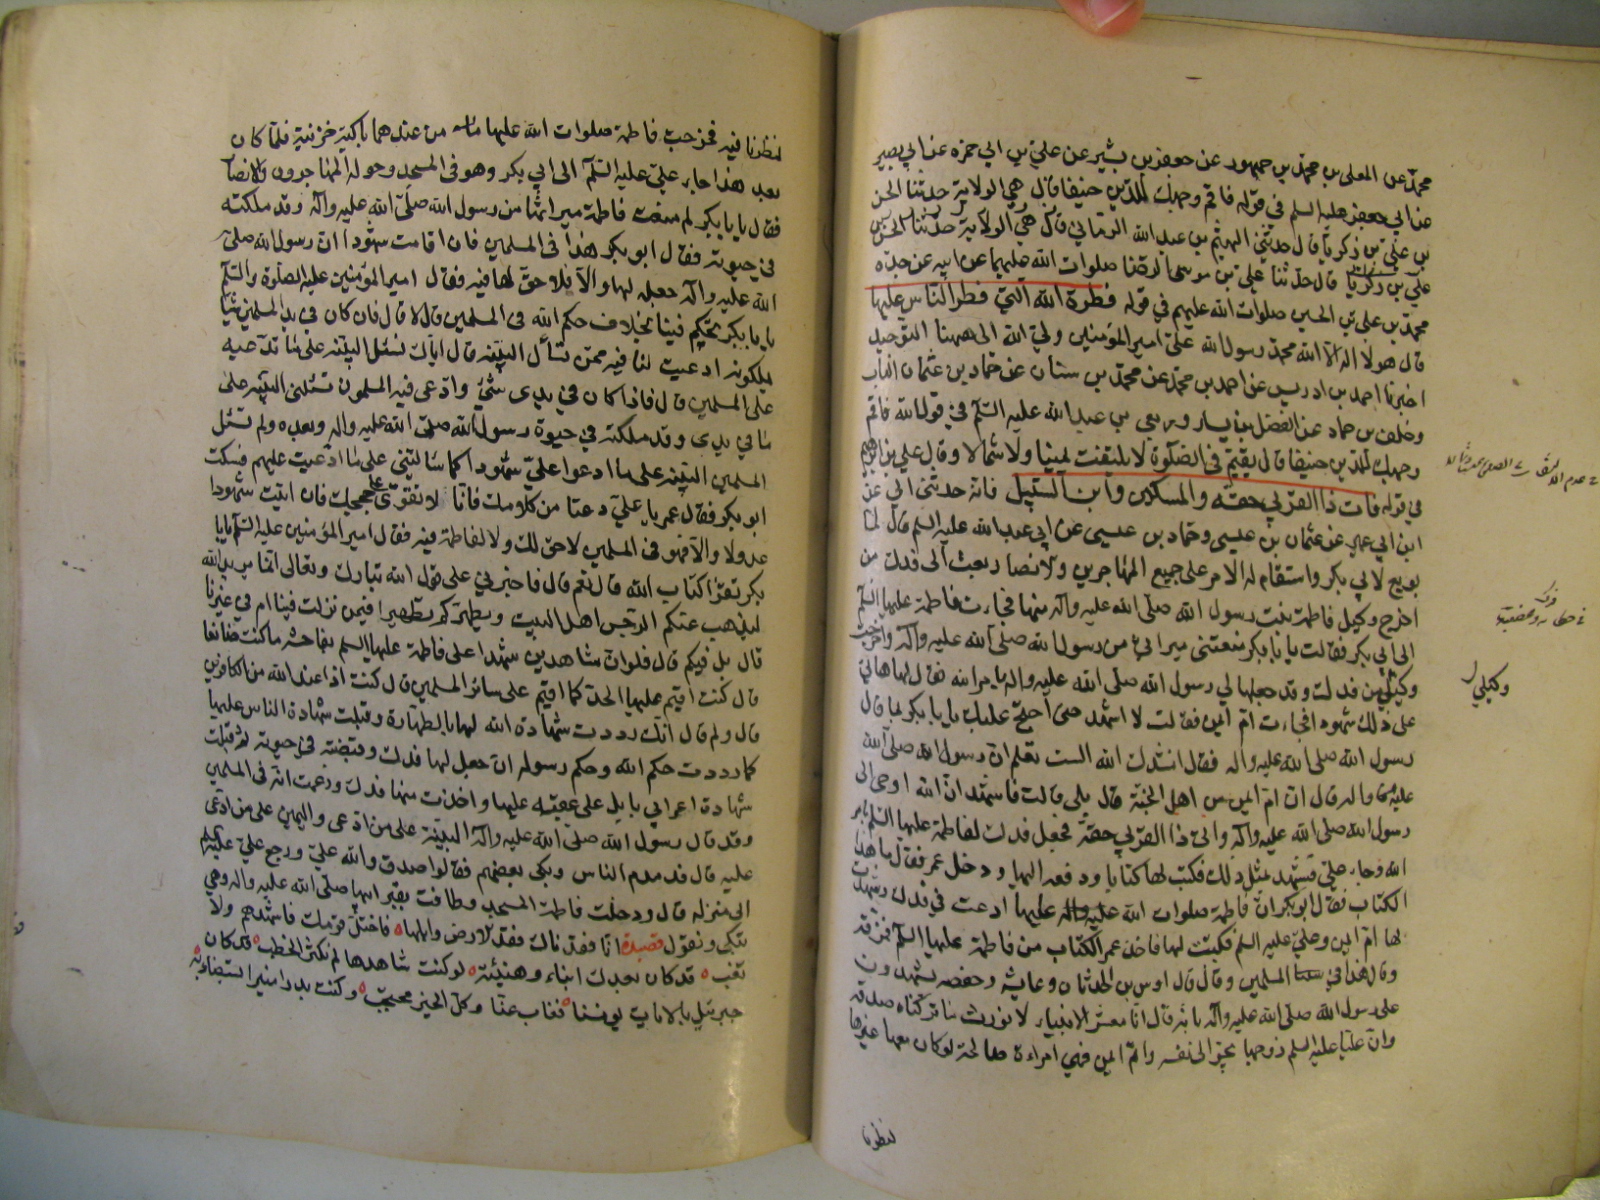 محمد عن المعلى بن محمد بن جمهور عن جعفر بن بشير عن علي بن ابي حمزه عن ابي بصير
عن ابي جعفر عليه السلم في قوله فاقم وجهك للدين حنيفا قال هي الولاية حدثنا الحسن
بن علي بن زكريا قال حدثني الهيثم بن عبد الله الرماني قال هي الولاية حدثنا الحسن بن
علي بن زكريا قال حدثنا علي بن موسى الرضا صلوات الله عليهما عن ابيه عن جده
محمد بن علي بن الحسين صلوات الله عليهم في قوله فطرة الله التي فطر الناس عليها
قال هو لا اله الا الله محمد رسول الله علي امير المؤمنين ولي الله الى ههنا التوحيد
اخبرنا احمد بن ادريس عن احمد بن محمد عن محمد بن سنان عن حماد بن عثمان الناب
وخلف بن حماد عن الفضل بن يسار وربعي بن عبد الله عليه السلم في قول الله فاقم
وجهك للدين حنيفا قال يقيم في الصلوة لا يلتفت يمينا ولا شمالا وقال علي بن ابراهيم
في قوله فات ذا القربى حقه والمسكين وابن السبيل فانه حدثني ابي عن
ابن ابي عمير عن عثمان بن عيسى وحماد بن عيسى عن ابي عبد الله عليه السلم قال لما
بويع لابي بكر واستقام له الامر على جميع المهاجرين والانصار بعث الى فدك من
اخرج وكيل فاطمة بنت رسول الله صلى الله عليه وآله منها فجاءت فاطمة عليها السلم
الى ابي بكر فقالت يا ابا بكر منعتني ميراثي من رسول الله صلى الله عليه وآله واخرجت
وكيلي من فدك وقد جعلها لي رسول الله صلى الله عليه واله بامر الله فقال لها هاتي
على ذلك شهودا فجاءت ام ايمن فقالت لا اشهد حتى احتج عليك يا ابا بكر بما قال
رسول الله صلى الله عليه واله فقال انشدك الله الست تعلم ان رسول الله صلى الله
عليه واله قال ان ام ايمن من اهل الجنة قال بلى قالت فاشهد ان الله اوحى الى
رسول الله صلى الله عليه وآله وات ذا القربى حقه فجعل فدك لفاطمة عليها السلم بامر
الله وجاء علي فشهد بمثل ذلك فكتب لها كتابا ودفعه اليها ودخل عمر فقال ما هذا
الكتاب فقال ابو بكر ان فاطمة صلوات الله عليها ادعت في فدك وشهدت
لها ام ايمن وعلي عليه السلم فكتبت لها فاخذ عمر الكتاب من فاطمة عليها السلم فمزقه
وقال هذا في المسلمين وقال قال اوس بن الحدثان وعايشة وحفصه يشهدون
على رسول الله صلى الله عليه وآله بانه قال انا معشر الانبياء لا نورث ما تركناه صدقه
وان عليا عليه السلم زوجها يجر الى نفسه وام ايمن فهي امراءة صالحة لو كان معها غيرها
لنظرنا
فدك
وكيلي
لنظرنا فيه فخرجت فاطمة صلوات الله عليها من عندهما باكية حزينة فلما كان
بعد هذا جاء علي عليه السلم الى ابي بكر وهو في المسجد وحوله المهاجرون والانصار
فقال يا ابا بكر لم منعت فاطمة ميراثها من رسول الله صلى الله عليه وآله وقد ملكته
في حيوته فقال ابو بكر هذا في المسلمين فان اقامت شهودا ان رسول الله صلى
الله عليه وآله جعله لها والا فلا حق لها فيه فقال امير المؤمنين عليه الصلوة والسلم
يا ابا بكر تحكم فينا بخلاف حكم الله في المسلمين قال لا قال فان كان في يد المسلمين شيئا
يملكونه ادعيت انا فيه ممن تسأل البينه قال اياك نسئل البينه على ما تدعيه
على المسلمين قال فاذا كان في يدي شئ وادعى فيه المسلمون تسئلني البينه على
ما في يدي وقد ملكته في حيوة رسول الله صلى الله عليه واله وبعده ولم تسئل
المسلمين البينه على ما ادعوا علي شهودا كما سالتني على ما ادعيت عليهم فسكت
ابو بكر فقال عمر يا علي دعنا من كلامك فانا لا نقوى على حججك فان اتيت شهودا
عدولا والا فهو في المسلمين لا حق لك ولا لفاطمة فيه فقال امير المؤمنين عليه السلم يا ابا
بكر تقرا كتاب الله قال نعم قال فاخبرني على قول الله تبارك وتعالى انما يريد الله
ليذهب عنكم الرجس اهل البيت ويطهركم تطهيرا فيمن نزلت فينا ام في غيرنا
قال بل فيكم قال فلو ان شاهدين شهدا على فاطمة عليها السلم بفاحشه ما كنت صانعا
قال كنت اقيم عليها الحد كما اقيم على سائر المسلمين قال كنت اذا عند الله من الكافرين
قال ولم قال انك رددت شهادة الله لها بالطهارة وقبلت شهادة الناس عليها
كما رددت حكم الله وحكم رسوله ان جعل لها فدك وقبضته في حيوته ثم قبلت
شهادة اعرابي بايل على عقبيه عليها واخذت منها فدك وزعمت انه في المسلمين
وقد قال رسول الله صلى الله عليه وآله البينة على من ادعى واليمين على من ادعى
عليه قال فدمدم الناس وبكى بعضهم فقالوا صدق والله علي ورجع علي عليه السلم
الى منزله قال ودخلت فاطمة المسجد وطافت بقبر ابيها صلى الله عليه واله وهي
تبكي وتقول قصيدة انا فقدناك فقد لارض وابلها فاختل قومك فاشهدهم ولا
تغب قد كان بعدك انباء وهنبثة لو كنت شاهدها لم تكثر الخطب قد كان
جبرئيل بالايات يونسنا فغاب عنا وكل الخير محتجب وكنت بدرا منيرا يستضاء به